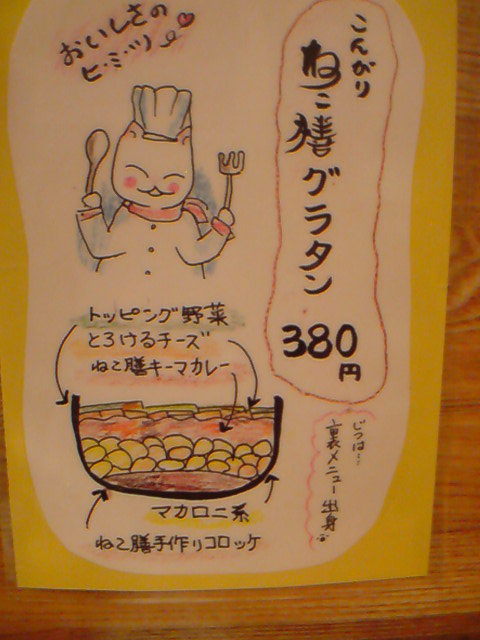 こんがり
ねこ膳グラタン
380円
おいしさの
ヒ・ミ・ツ
トッピング野菜
とろけるチーズ
ねこ膳キーマカレー
マカロニ系
ねこ膳手作りコロッケ
じつは…
裏メニュー出身